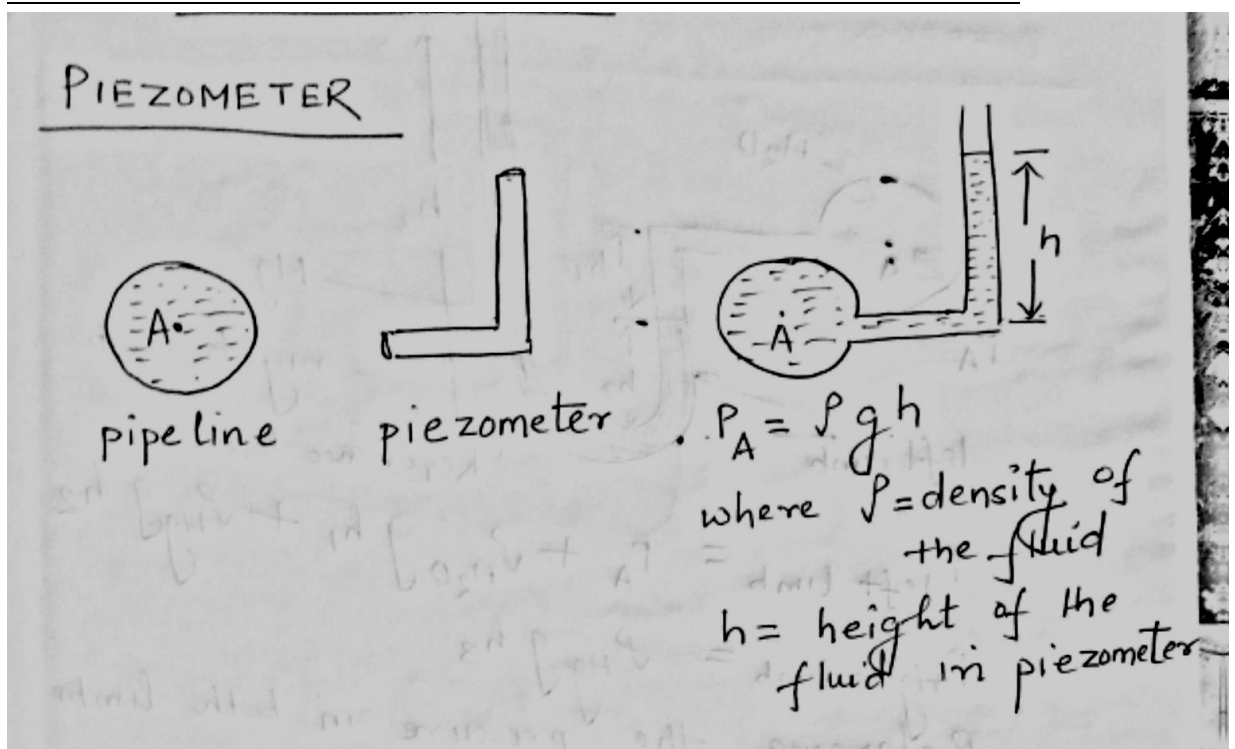 PIEZOMETER
A.
pipe line
piezometer
A
h
P_A = ρgh
where ρ = density of
the fluid
h = height of the
fluid in piezometer